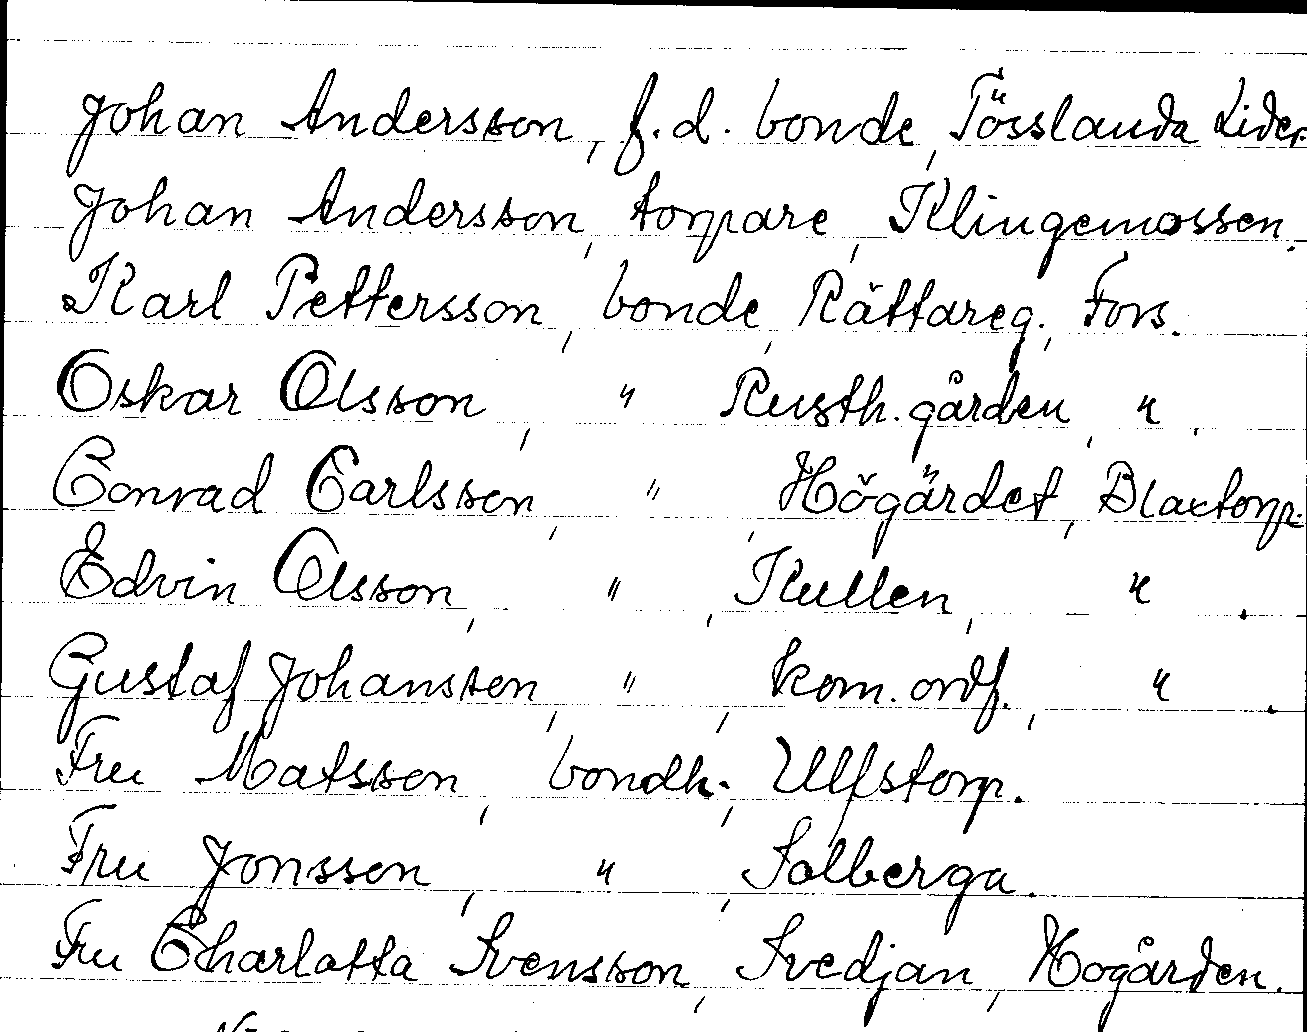 Johan Andersson, f.d. bonde, Tösslanda Lider.
Johan Andersson, torpare, Klingemossen.
Karl Pettersson, bonde, Rättareg., Fors.
Oskar Olsson, " Rusth.gården, " .
Conrad Carlsson, " , Högärdet, Blaxtorp.
Edvin Olsson, " , Kullen, " .
Gustaf Johansson, " , kom.ordf., " .
Fru Matsson, bondh., Ulfstorp.
Fru Jonsson, " , Solberga.
Fru Charlotta Svensson, Svedjan, Hogården.